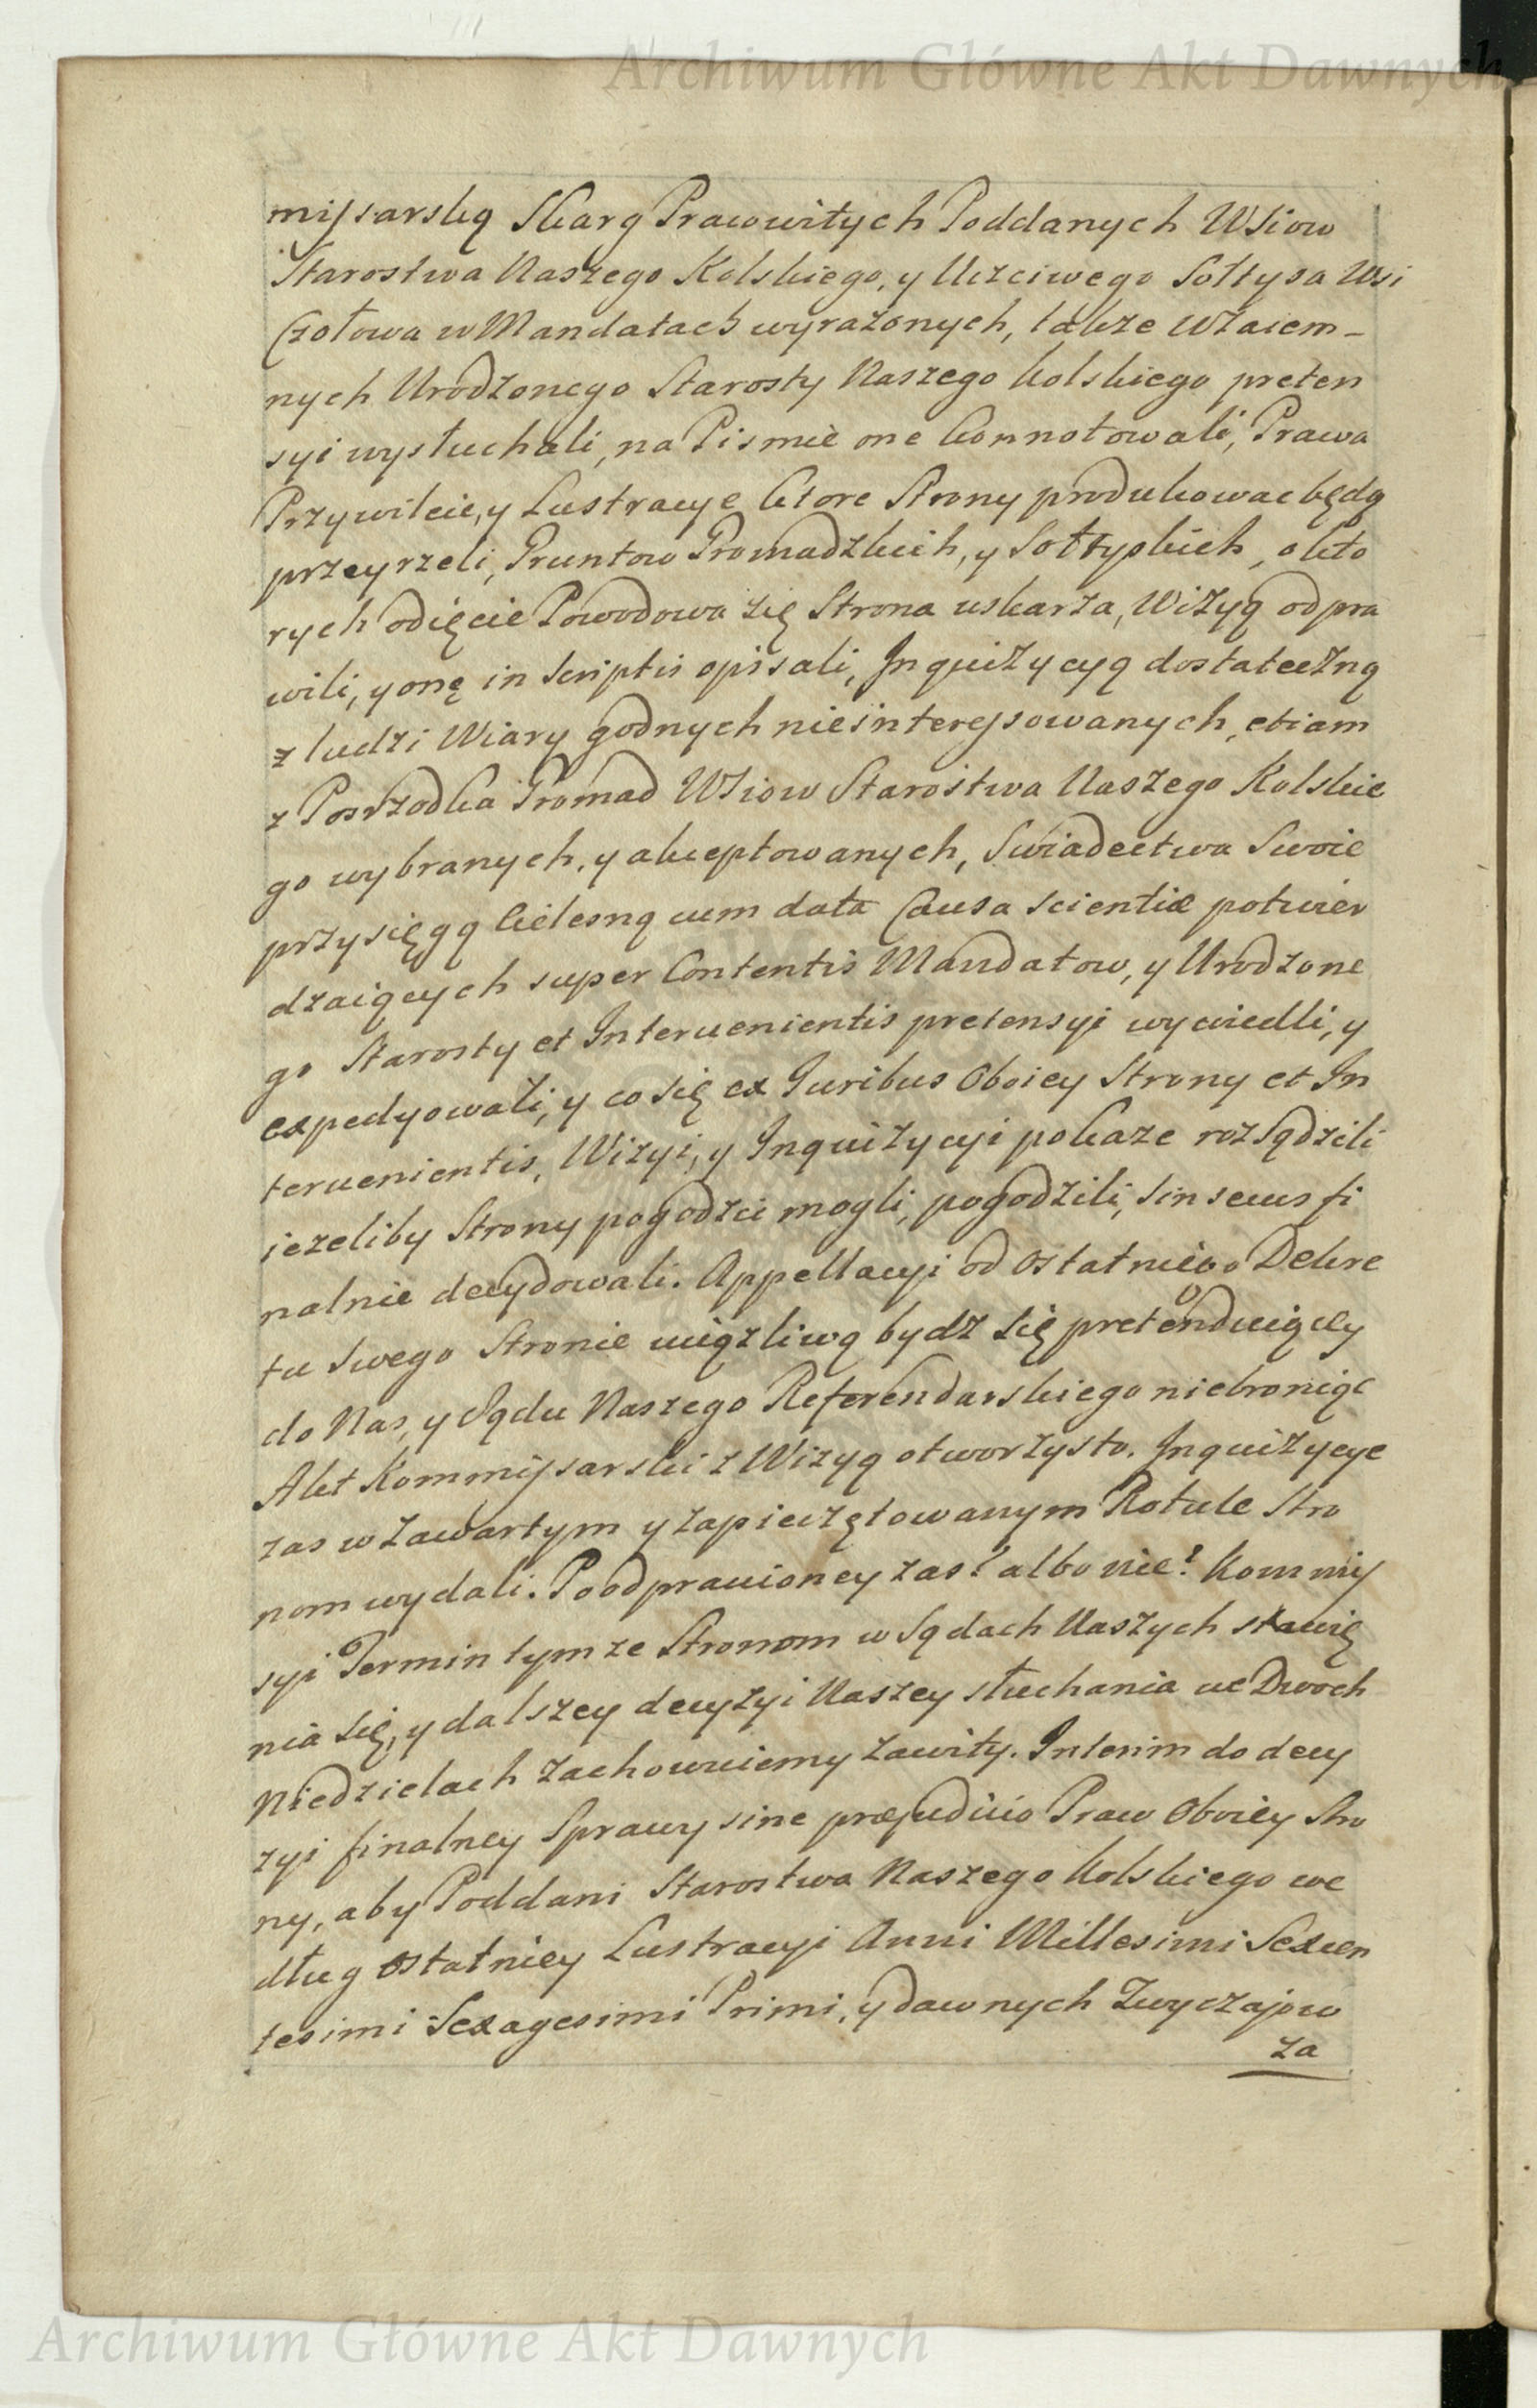 Archiwum Główne Akt Dawnych
mißarską Skarg Prawowitych Poddanych Wsiow
Starostwa Naszego Kolskiego, y Uczciwego Sołtysa Wsi
Czołowa w Mandatach wyrażonych, także Wzaiem-
nych Urodzonego Starosty Naszego Kolskiego preten
syi wysłuchali, na Pismie one konnotowali, Prawa
Przywileie, y Lustracye ktore Strony produkowac będą
przeyrzeli, Gruntow Gromadzkich, y Sołtyskich, o kto
rych odięcie Powodowa się Strona uskarza, Wizyą odpra
wili, y onę in Scriptis opisali, Inquizycyą dostateczną
z ludzi Wiary godnych nieinteressowanych, etiam
z Posrzodka Gromad Wsiow Starostwa Naszego Kolskie
go wybranych, y akceptowanych, Swiadectwa Swoie
przysięgą Cielesną cum data Causa scientiæ potwier
dzaiących super Contentis Mandatow, y Urodzone
go Starosty et Intervenientis pretensyi wywiedli, y
expedyowali, y co się ex Iuribus Oboiey Strony et In
tervenientis, Wizyi, y Inquizycyi pokaze rozsądzili
iezeliby Strony pogodzic mogli, pogodzili, sin secus fi
nalnie decydowali. Appellacyi od ostatniego Dekre
tu Swego Stronie uciązliwą bydz się pretenduiącey
do Nas, y Sądu Naszego Referendarskiego niebroniąc
Akt Kommißarski z Wizyą otworzysto. Inquizycye
zas w zawartym y zapieczętowanym Rotule Stro
nom wydali. Po odprawioney zas? albo nie? Kommiß
syi Termin tymze Stronom w Sądach Naszych stawię
nia się, y dalszey decyzyi Naszey słuchania we Dwoch
Niedzielach zachowuiemy zawity. Interim do decy
zyi finalney Sprawy sine præjudicio Praw Oboiey Stro
ny, aby Poddani Starostwa Naszego Kolskiego we
dług ostatniey Lustracyi Anni Millesimi Sexcen
tesimi Sexagesimi Primi, y dawnych Zwyczajow
za
Archiwum Główne Akt Dawnych